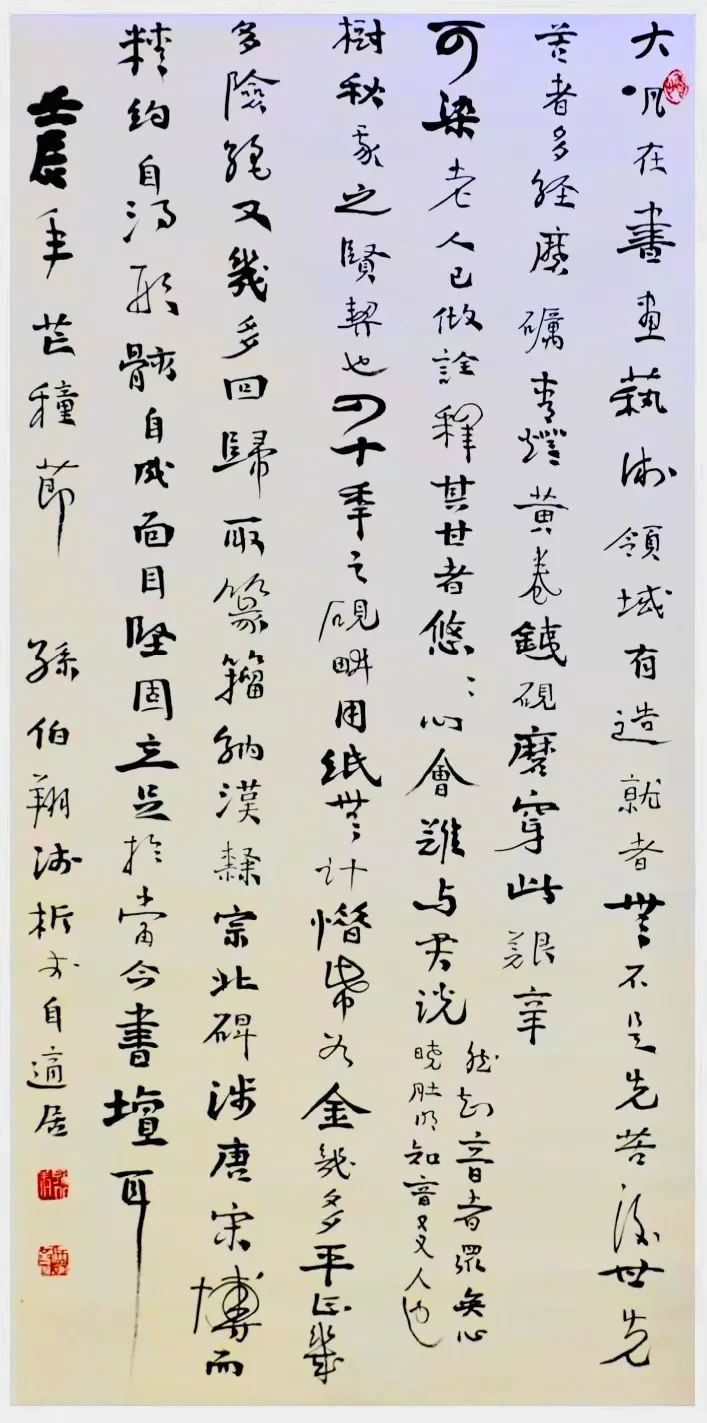 大凡在書畫藝術領域有造就者無不是先苦後甘先
苦者多經磨礪青燈黃卷鐵硯磨穿此艱辛
可染老人已做詮釋其甘者悠悠心會難与君說
然知音者眾矣心
曉肚明知音人也
樹秋我之賢契也十年之硯畔用紙無計惜帋如金幾多平正幾
多險絕又幾多回歸取篆籀納漢隸宗北碑涉唐宋博而
精約自得形骸自成面目堅固立足於當今書壇耳
壬辰年芒種節 孫伯翔自適居